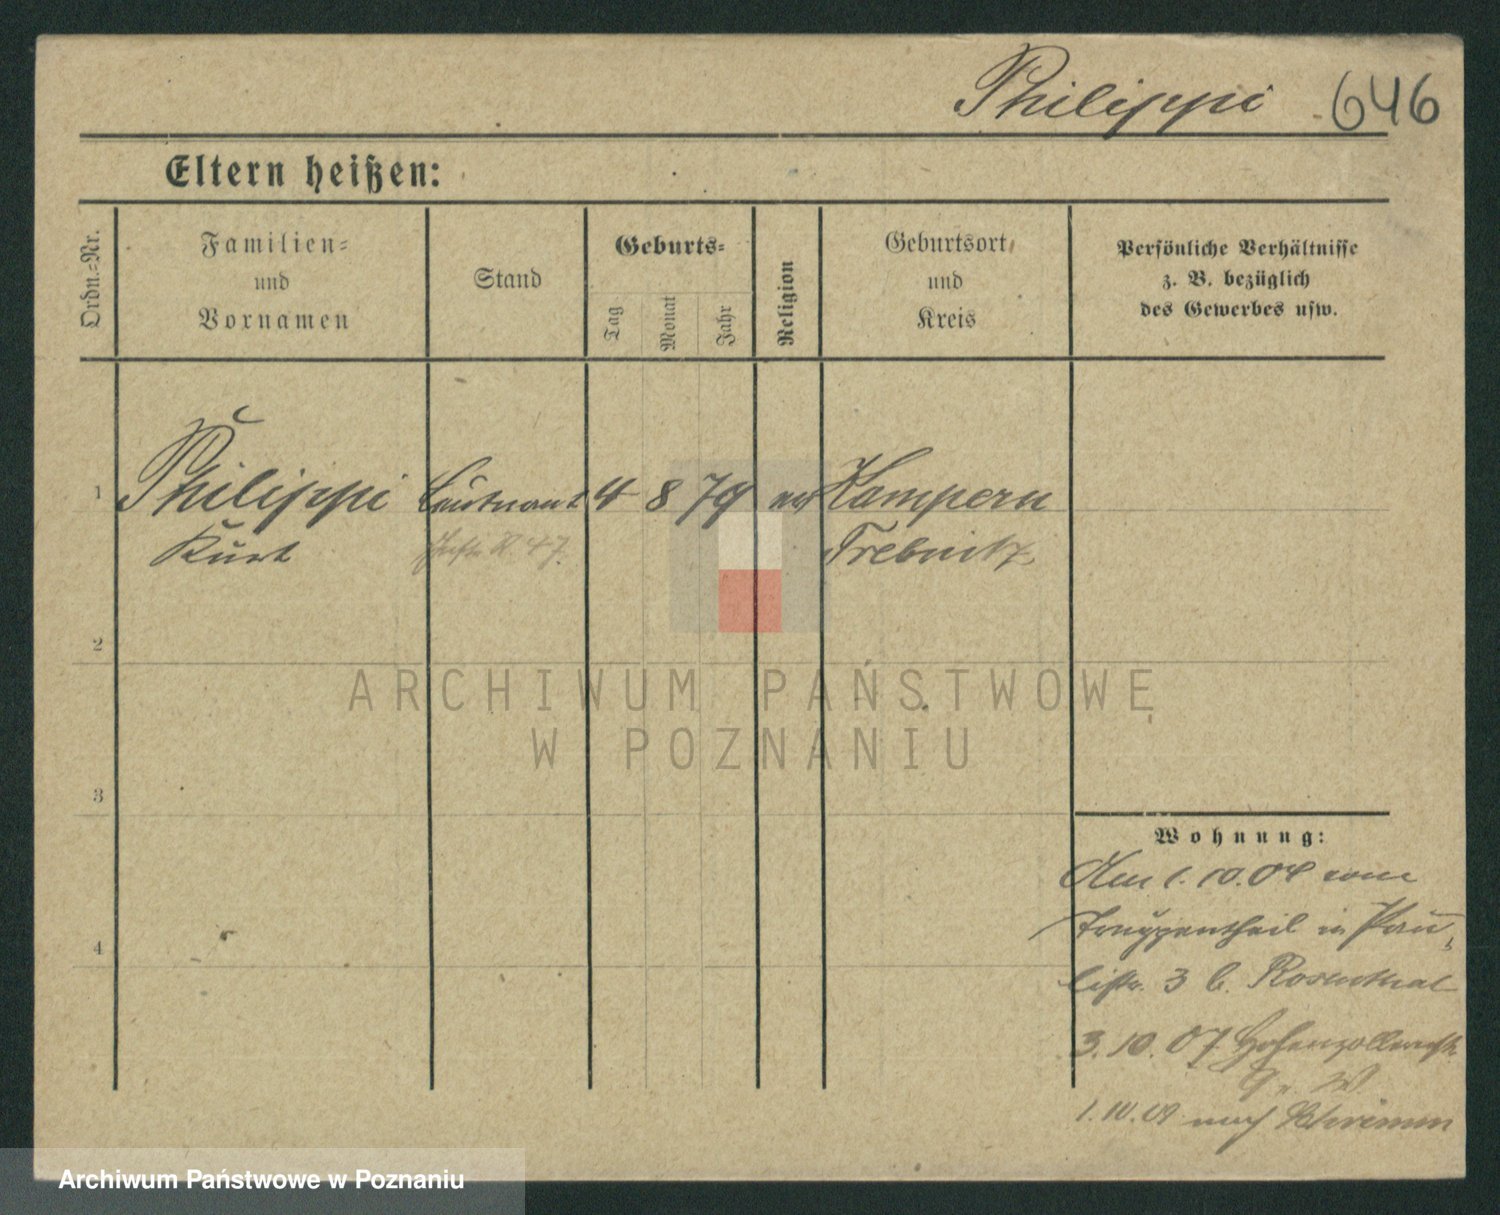 Philippi 646
Eltern heißen:
Ordn.=Nr.
Familien=
und
Vornamen
Stand
Geburts=
Tag
Monat
Jahr
Religion
Geburtsort
und
Kreis
Persönliche Verhältnisse
z. B. bezüglich
des Gewerbes usw.
1 Philippi Leutnant 4 8 79 ev Kampern
Kurt Inftr. R. 47. Trebnitz
2
3
4
Wohnung:
Am 1.10.04 vom
Truppentheil in Pau-
listr. 3 b. Rosenthal
3.10.07 Hohenzollernstr.
1.10.09 nach Schrimm
ARCHIWUM PAŃSTWOWE
W POZNANIU
Archiwum Państwowe w Poznaniu